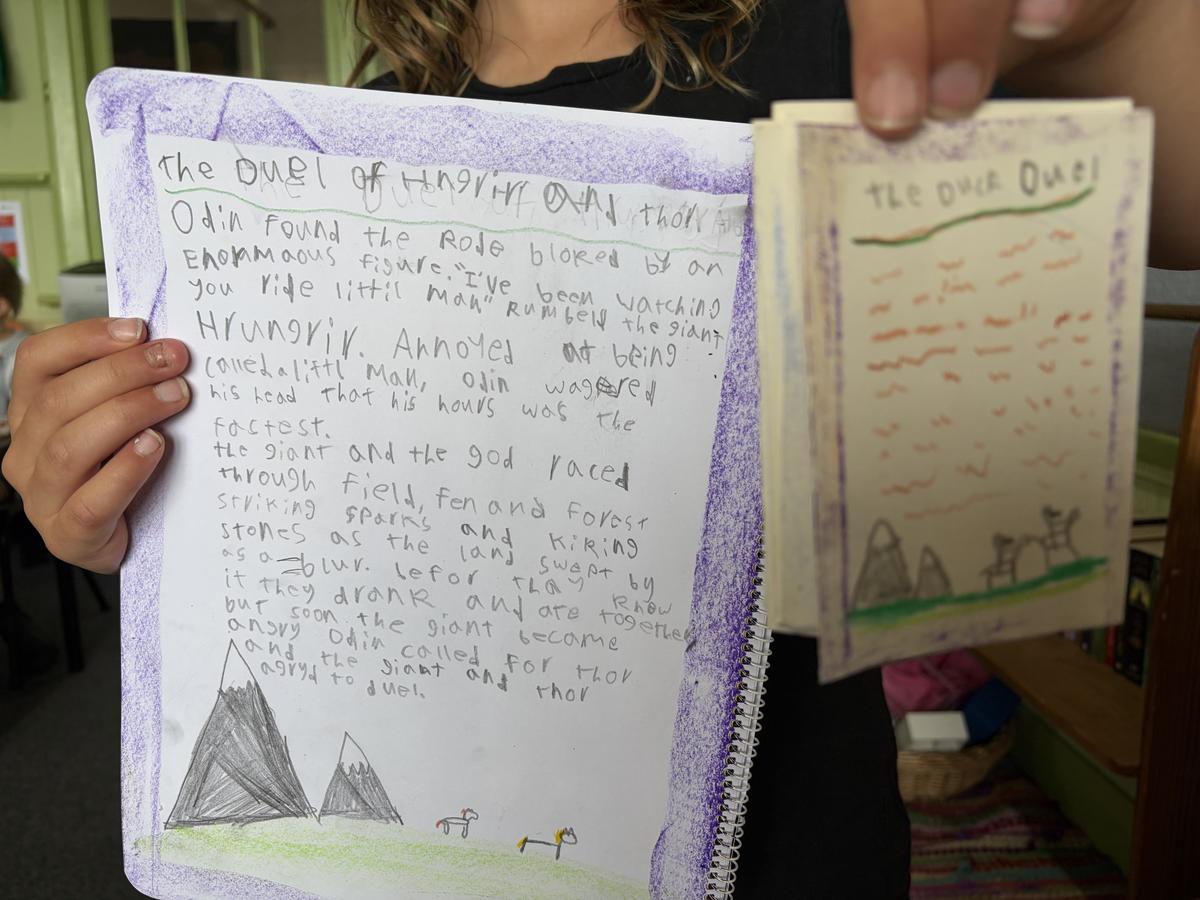 the Duel of Hngrir and thor
Odin found the Rode bloked by an
Enormaous figure. "I've been watching
you ride littil man" Rumbeld the giant
Hrungrir. Annoyed at being
called a littl man, Odin wagered
his head that his hours was the
fastest.
the giant and the god raced
through field, fen and forest
striking sparks and kiking
stones as the land swept by
as a blur. befor thay know
it they drank and ate together
but soon the giant became
angry Odin called for thor
and the giant and thor
agryd to duel.
the Duck Duel